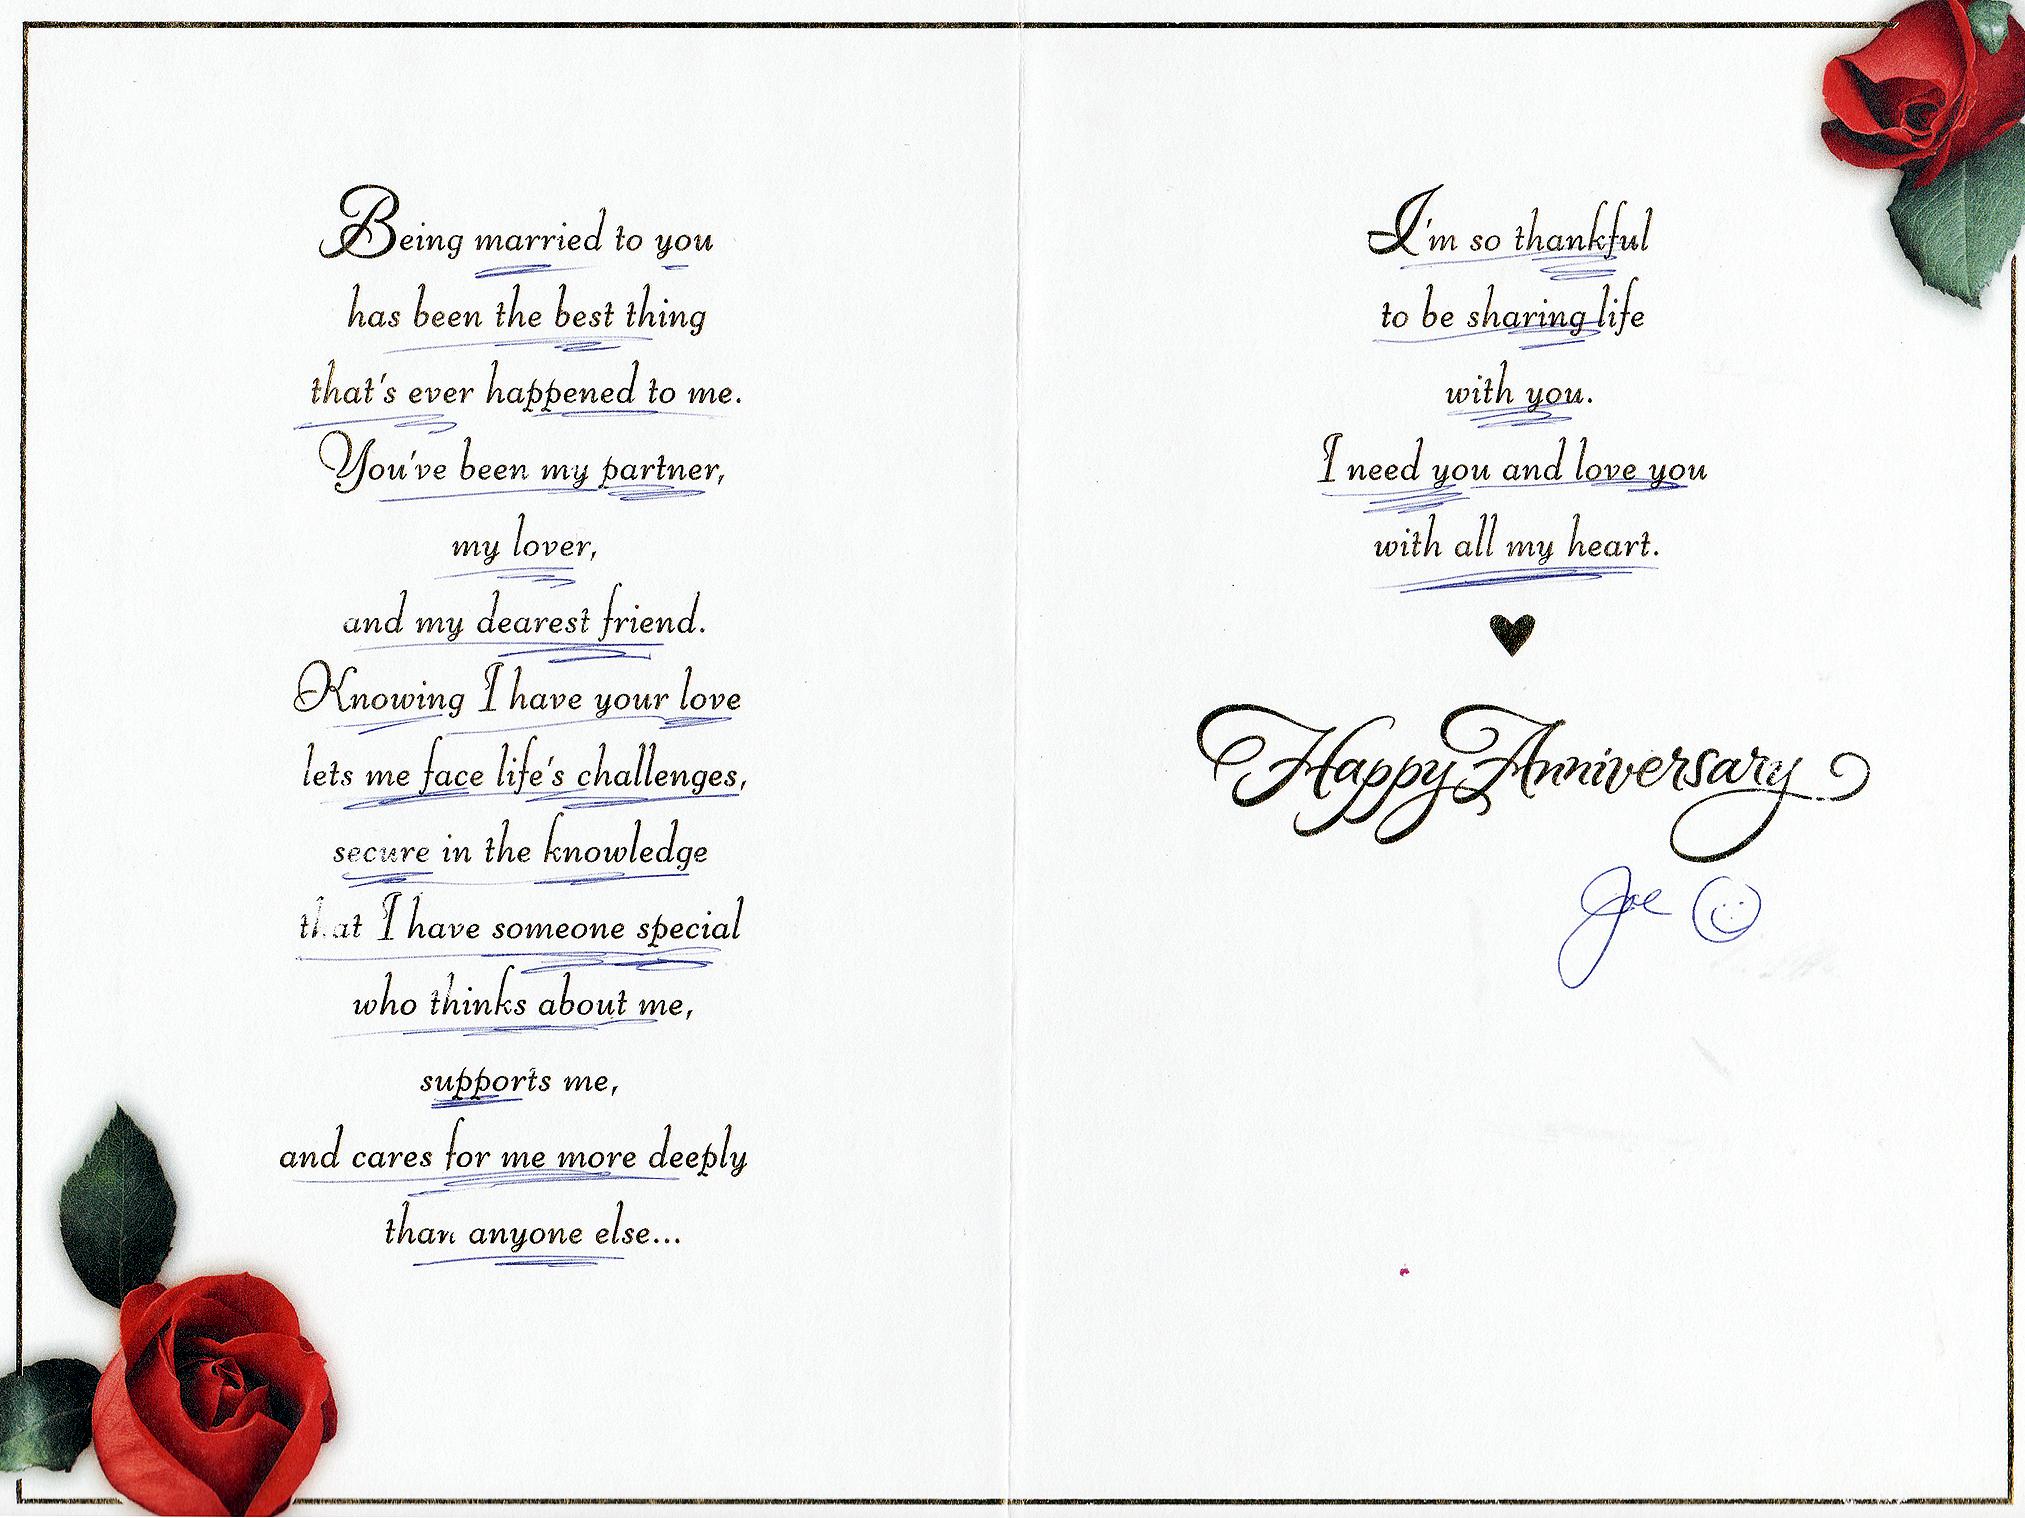 Being married to you
has been the best thing
that's ever happened to me.
You've been my partner,
my lover,
and my dearest friend.
Knowing I have your love
lets me face life's challenges,
secure in the knowledge
that I have someone special
who thinks about me,
supports me,
and cares for me more deeply
than anyone else...
I'm so thankful
to be sharing life
with you.
I need you and love you
with all my heart.
Happy Anniversary
Joe